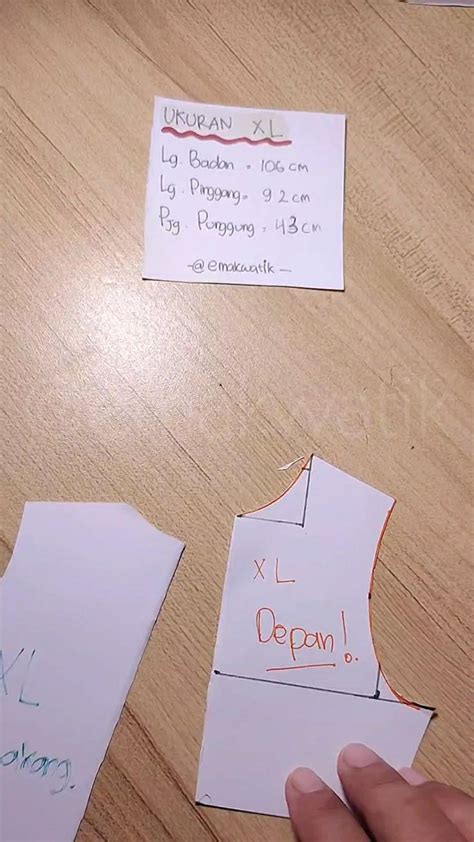 UKURAN XL
Lg. Badan = 106 cm
Lg. Pinggang = 92 cm
Pjg. Punggung = 43 cm
-@emakwatik-
XL
Depan!
XL